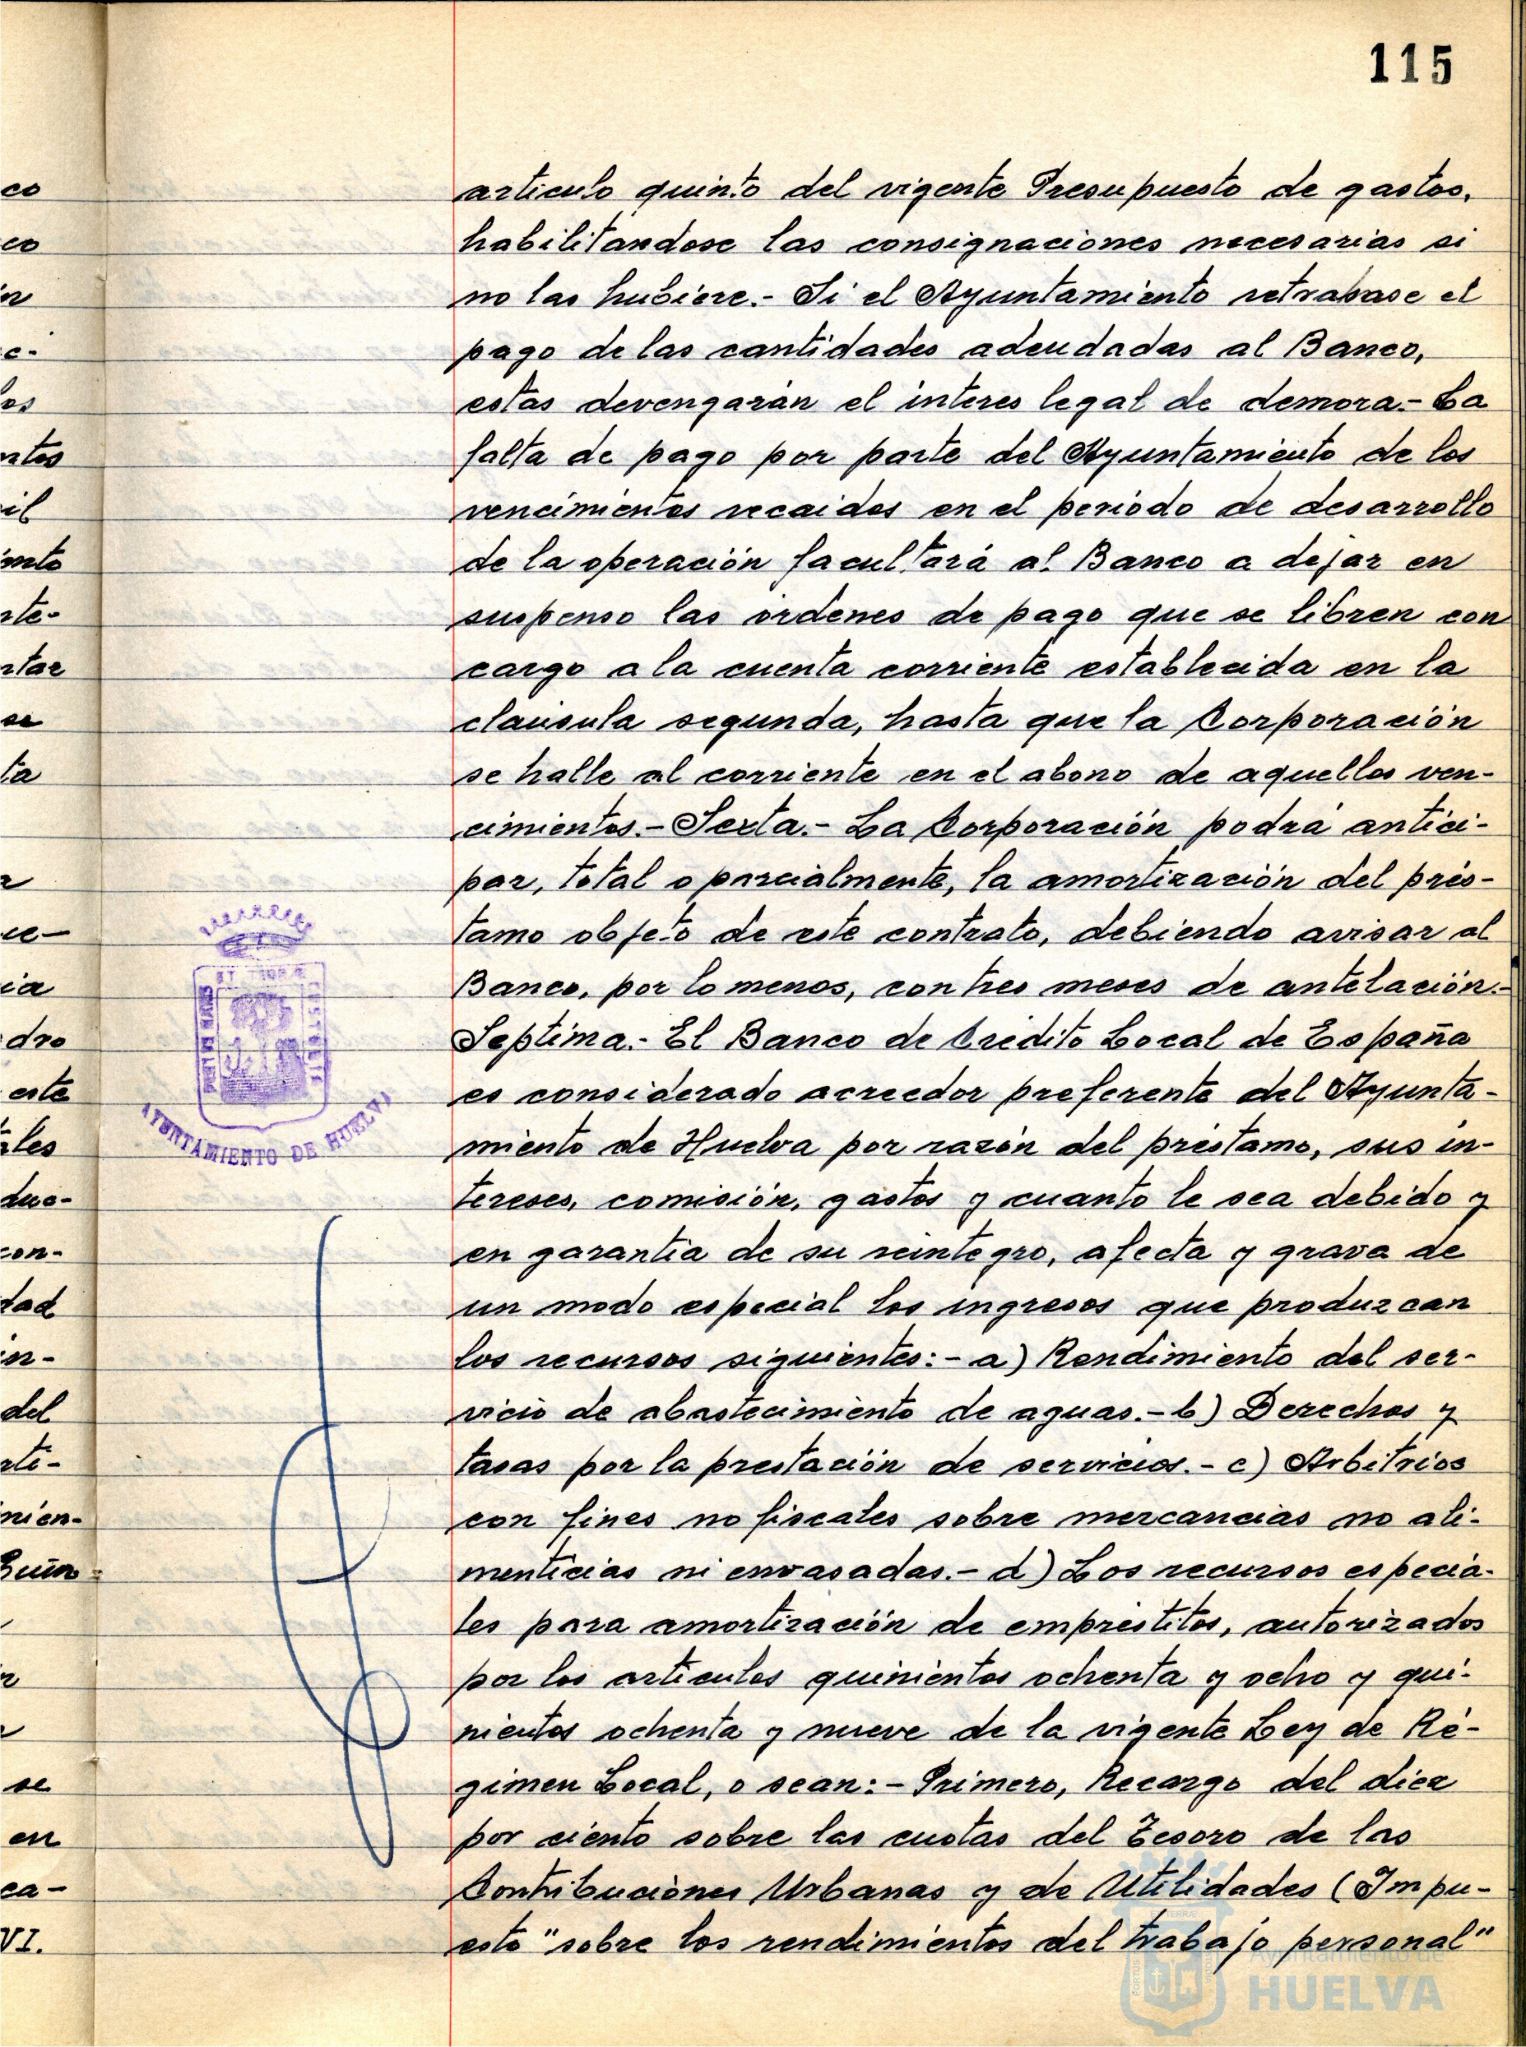 115
articulo quinto del vigente Presupuesto de gastos,
habilitandose las consignaciones necesarias si
no las hubiere.- Si el Ayuntamiento retrabase el
pago de las cantidades adeudadas al Banco,
estas devengarán el interes legal de demora.- La
falta de pago por parte del Ayuntamiento de los
vencimientos recaidos en el periodo de desarrollo
de la operación facultará al Banco a dejar en
suspenso las ordenes de pago que se libren con
cargo a la cuenta corriente establecida en la
clausula segunda, hasta que la Corporación
se halle al corriente en el abono de aquellos ven-
cimientos.- Sexta.- La Corporación podrá antici-
par, total o parcialmente, la amortización del prés-
tamo objeto de este contrato, debiendo avisar al
Banco, por lo menos, con tres meses de antelación.-
Septima.- El Banco de Credito Local de España
es considerado acreedor preferente del Ayunta-
miento de Huelva por razón del préstamo, sus in-
tereses, comisión, gastos y cuanto le sea debido y
en garantia de su reintegro, afecta y grava de
un modo especial los ingresos que produzcan
los recursos siguientes:- a) Rendimiento del ser-
vicio de abastecimiento de aguas.- b) Derechos y
tasas por la prestación de servicios.- c) Arbitrios
con fines no fiscales sobre mercancias no ali-
menticias ni envasadas.- d) Los recursos especia-
les para amortización de empréstitos, autorizados
por los articulos quinientos ochenta y ocho y qui-
nientos ochenta y nueve de la vigente Ley de Ré-
gimen Local, o sean:- Primero, Recargo del diez
por ciento sobre las cuotas del Tesoro de las
Contribuciones Urbanas y de Utilidades (Impu-
esto "sobre los rendimientos del trabajo personal"
AYUNTAMIENTO DE HUELVA
Ayuntamiento de
HUELVA